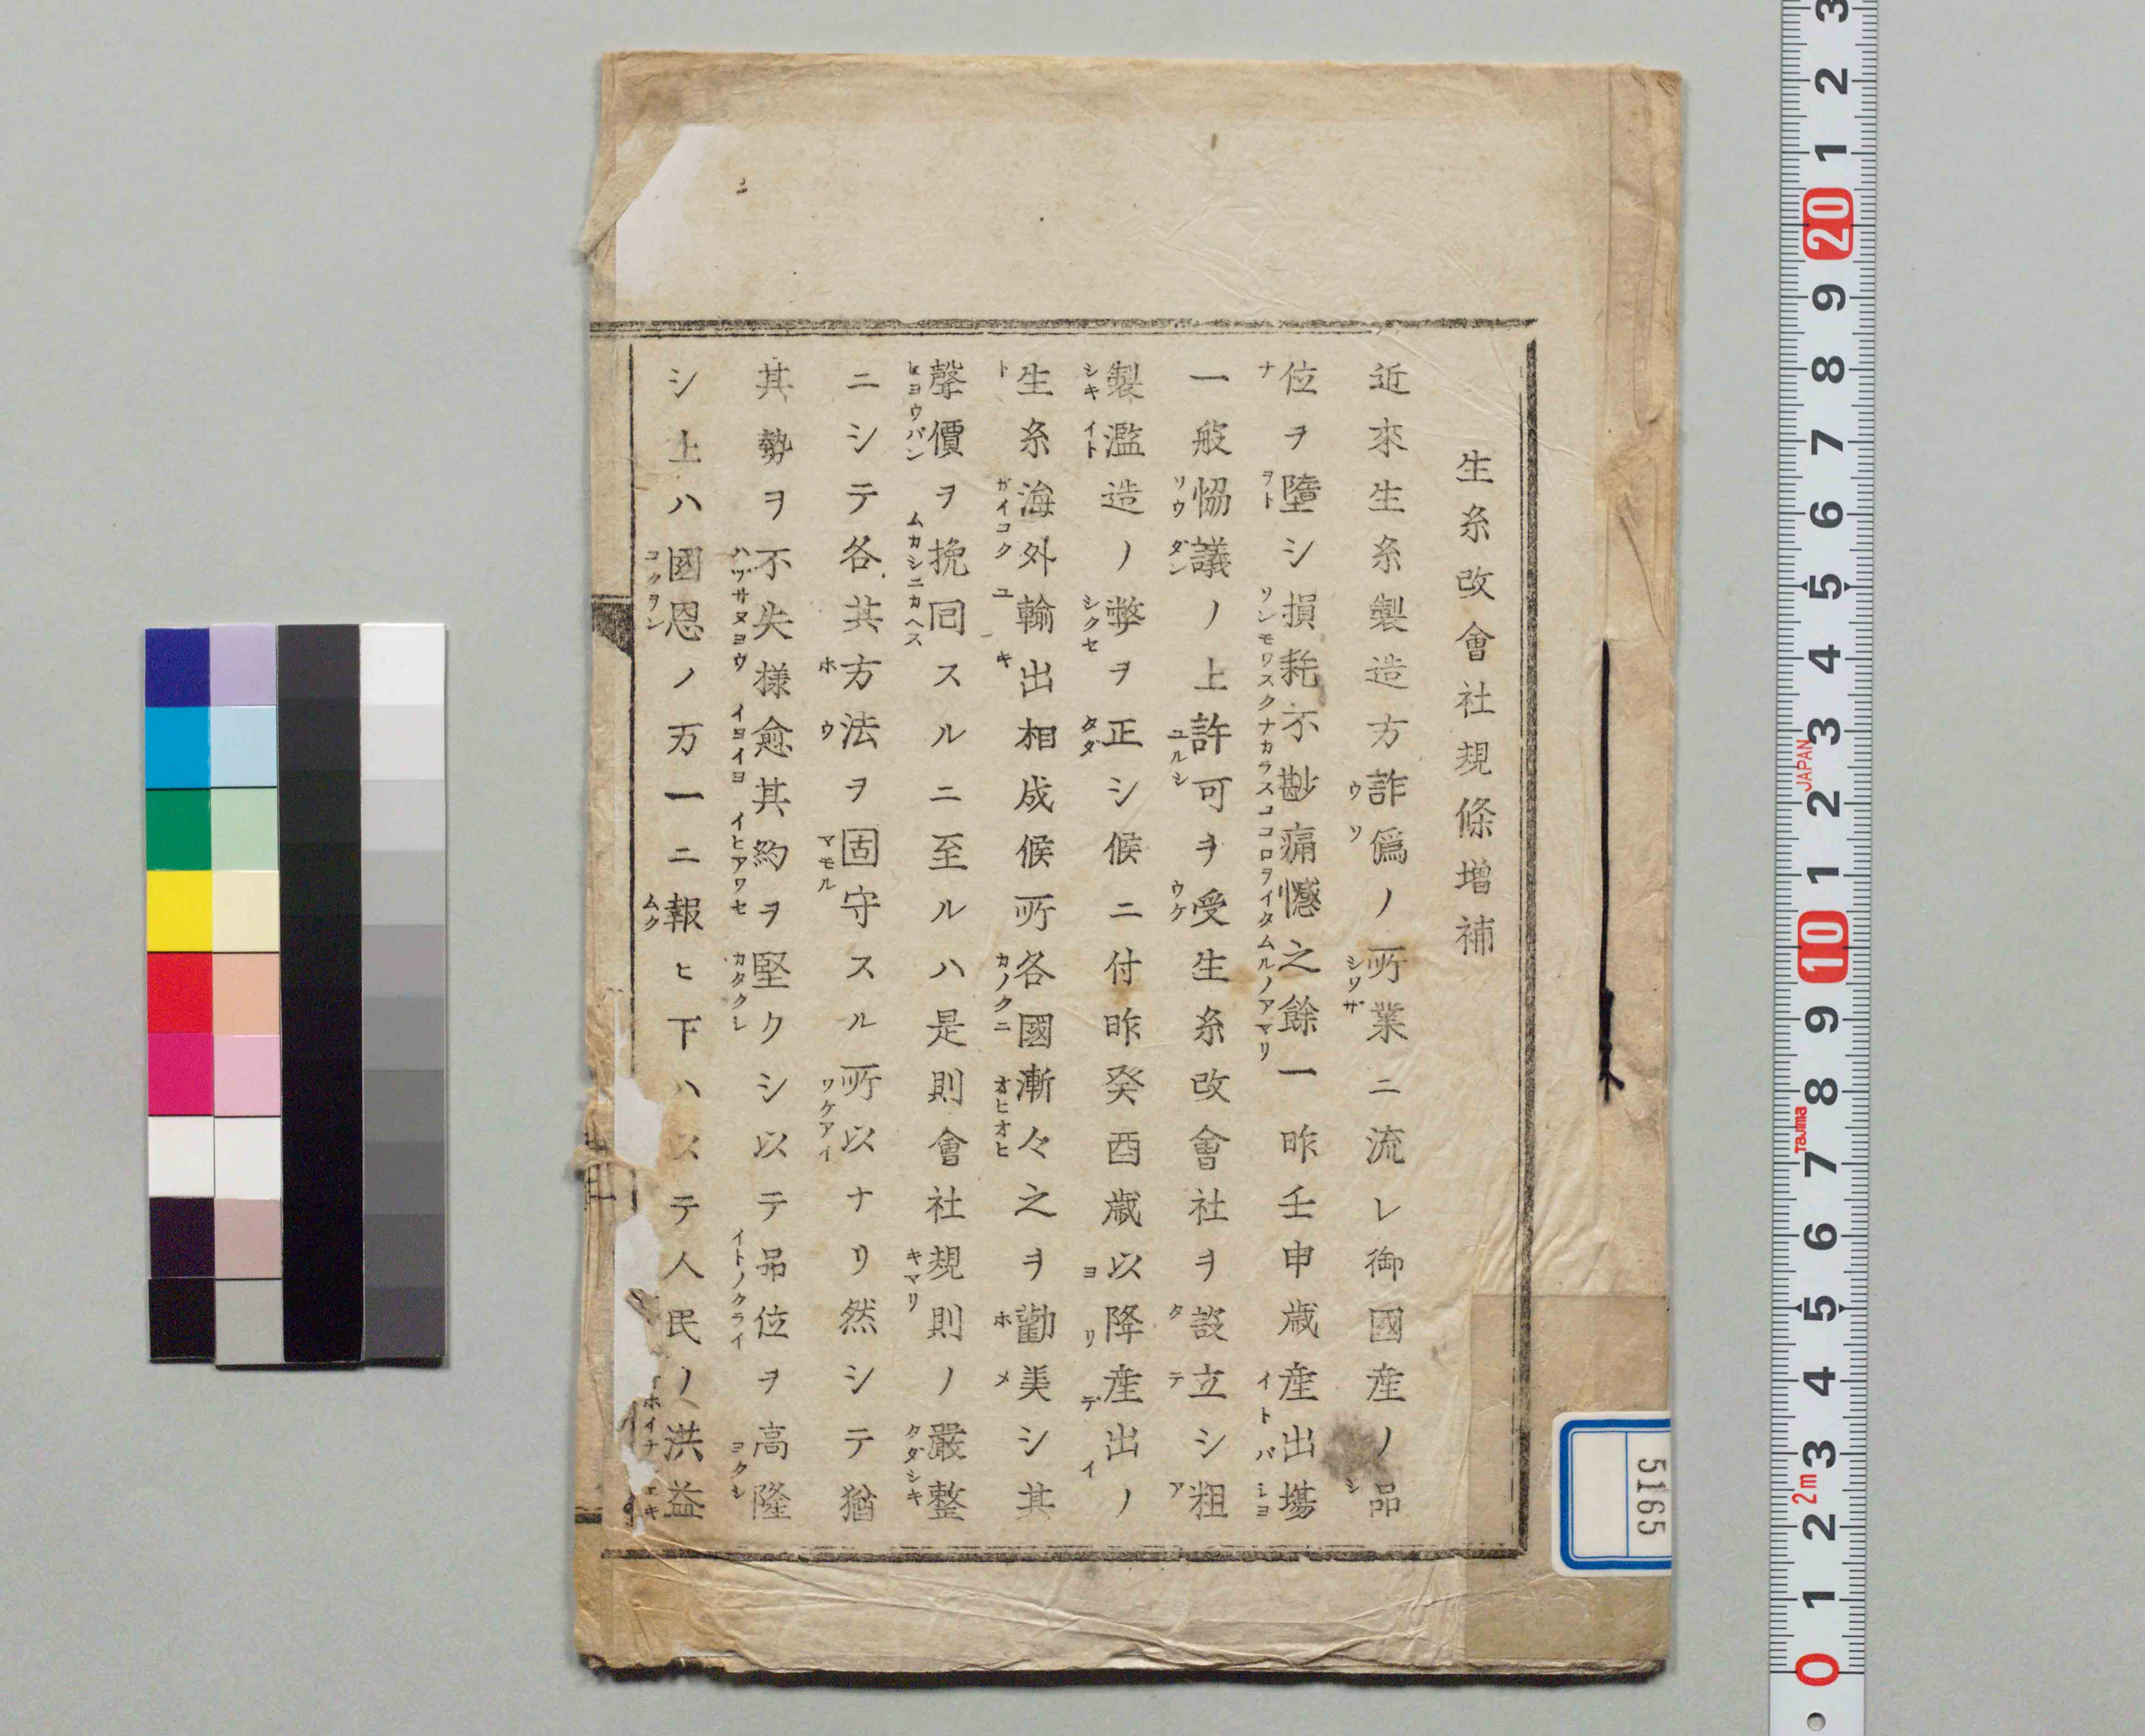 生糸改會社規條増補
近來生糸製造方詐僞ノ所業ニ流レ御國産ノ品
位ヲ墮シ損耗不尠痛憾之餘一昨壬申歳産出塲
一般恊議ノ上許可ヲ受生糸改會社ヲ設立シ粗
製濫造ノ弊ヲ正シ候ニ付昨癸酉歳以降産出ノ
生糸海外輸出相成候所各國漸々之ヲ勸美シ其
聲價ヲ挽回スルニ至ルハ是則會社規則ノ嚴整
ニシテ各其方法ヲ固守スル所以ナリ然シテ猶
其勢ヲ不失様愈其約ヲ堅クシ以テ品位ヲ高隆
シ上ハ國恩ノ万一ニ報ヒ下ハ以テ人民ノ洪益
5165
3
2
1
20
9
8
7
6
5
4
3
JAPAN
2
1
10
9
8
Tajima
7
6
5
4
3
2m
2
1
0